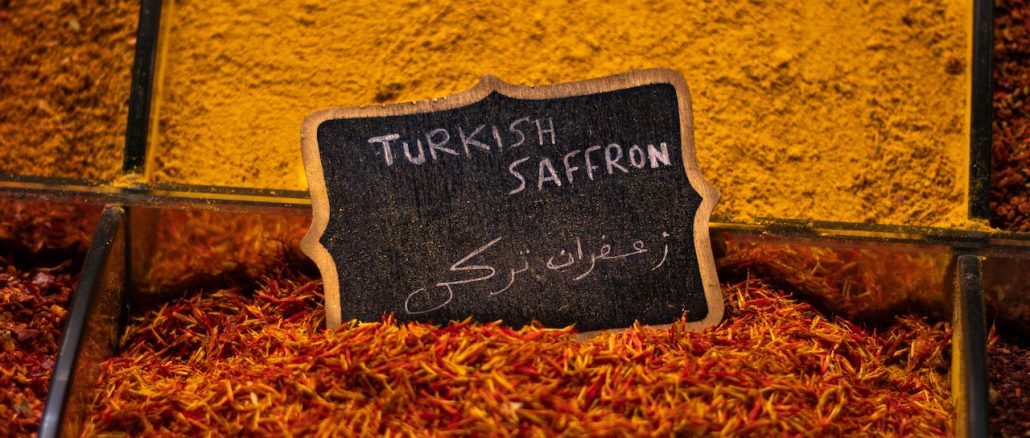 TURKISH
SAFFRON
زعفران تركي